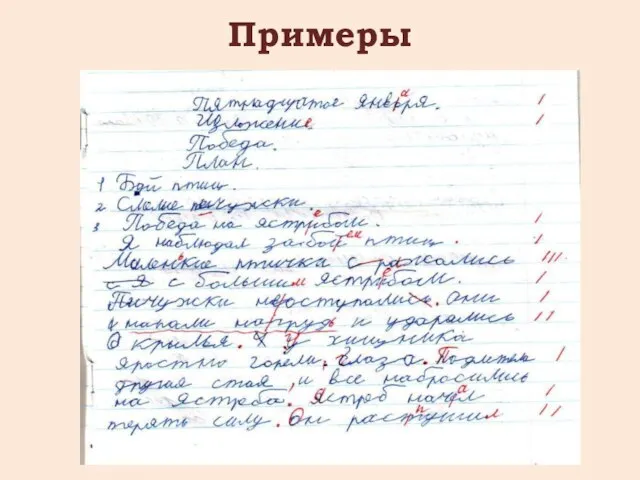 Примеры
Пятнадцатое января.
Изложение.
Победа.
План.
1 Бой птиц.
2 Смелые пичужки.
3 Победа на ястребом.
Я наблюдал за бой птиц.
Маленкие птички с ражались
с я с большим ястрбом.
Пичужки не оступались. они
нападали на грудь и ударялись
О крылья. У хищника
яростно горели, глаза. Подлетела
другая стая, и все набросились
на Ястреба. Ястреб начал
терять силу. Он распушил